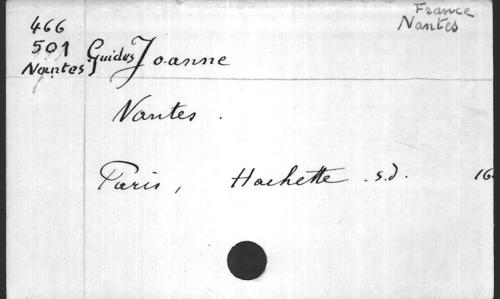 France
Nantes
466
501
Nantes
Guides Joanne
Nantes .
Paris, Hachette . s.d. 16